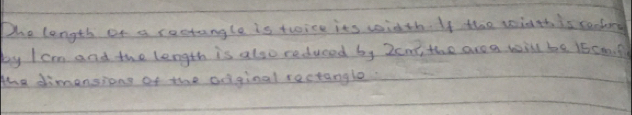 The length of a rectangle is twice its width. If the width is reduced
by 1cm and the length is also reduced by 2cm, the area will be 15cm.
the dimensions of the original rectangle.